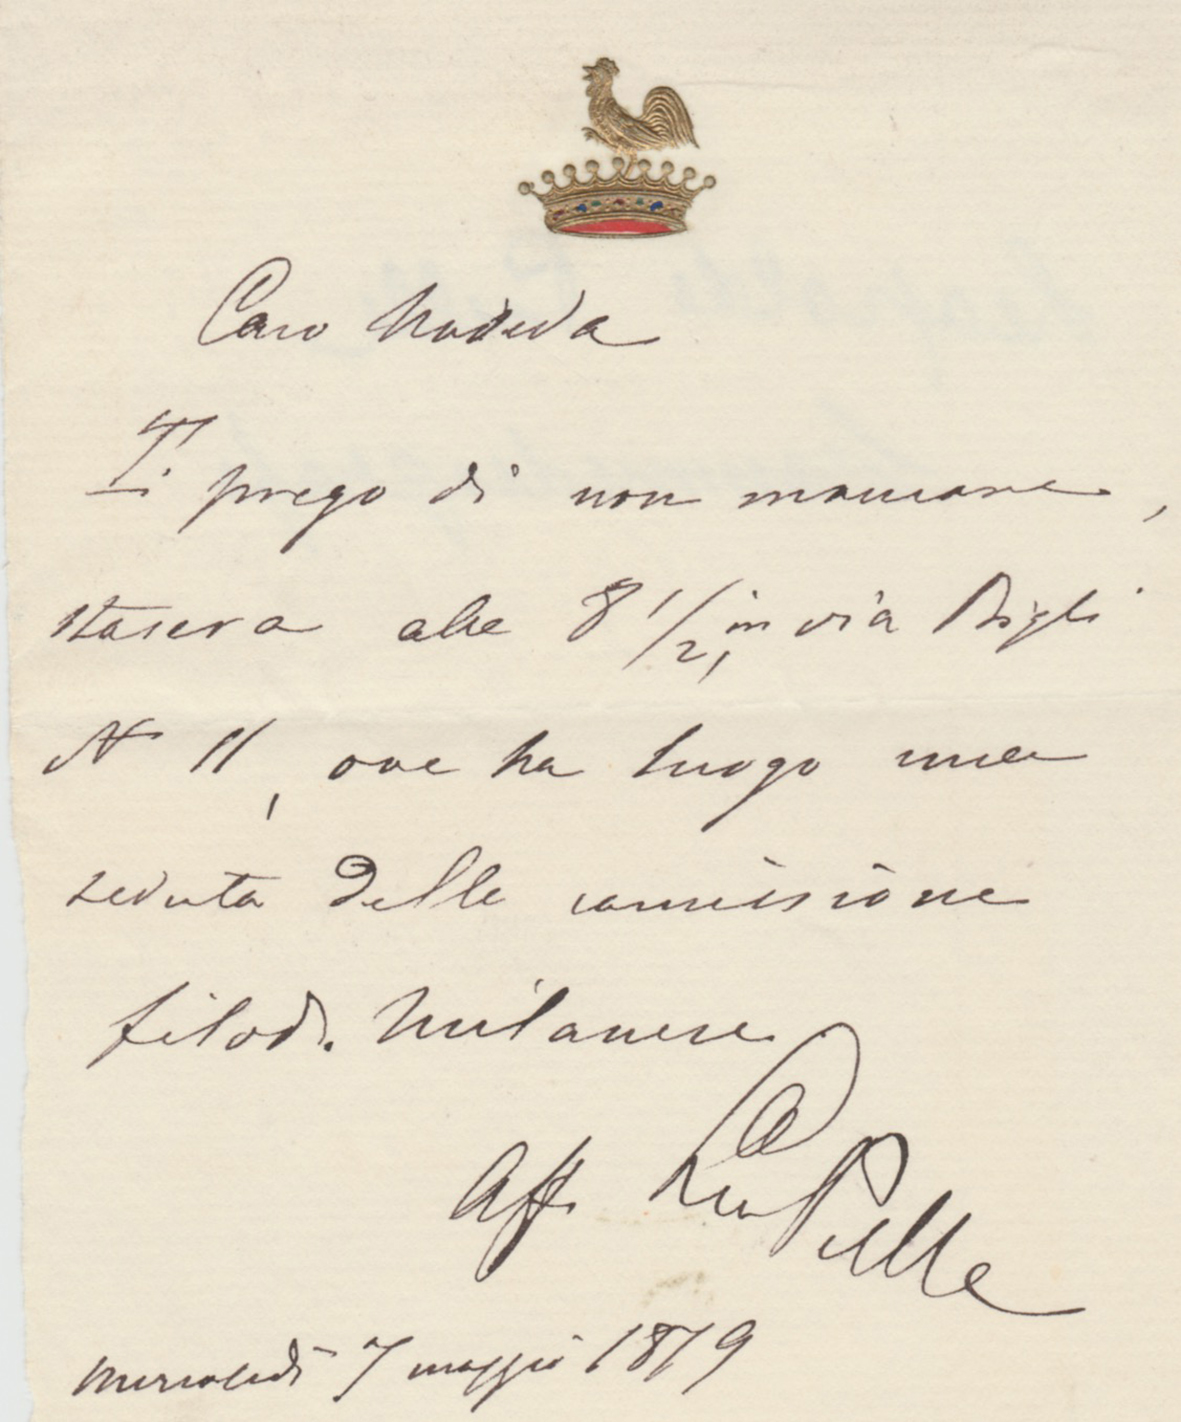 Caro
Ti prego di non mancare,
stasera alle 8 1/2, in via Bigli
N 11, ove ha luogo una
seduta della commissione
filod. Milanese
Aff.
mercoledì 7 maggio 1879